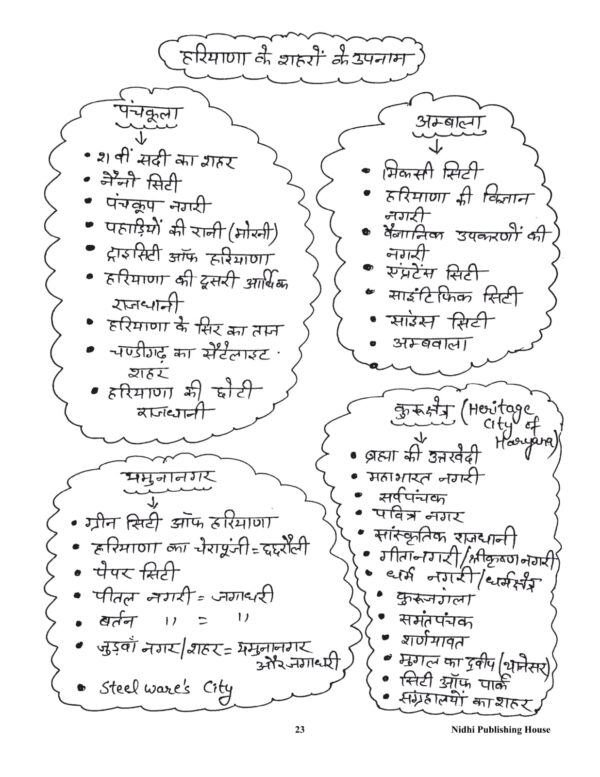 हरियाणा के शहरों के उपनाम
पंचकूला
• 21 वीं सदी का शहर
• नैनो सिटी
• पंचकूप नगरी
• पहाड़ियों की रानी (मोरनी)
• ट्राइसिटी ऑफ हरियाणा
• हरियाणा की दूसरी आर्थिक
राजधानी
• हरियाणा के सिर का ताज
• चण्डीगढ़ का सैटेलाइट
शहर
• हरियाणा की छोटी
राजधानी
अम्बाला
• मिक्सी सिटी
• हरियाणा की विज्ञान
नगरी
• वैज्ञानिक उपकरणों की
नगरी
• एंप्रटेंस सिटी
• साइंटिफिक सिटी
• साइंस सिटी
• अम्बवाला
•
यमुनानगर
• ग्रीन सिटी ऑफ हरियाणा
• हरियाणा का चेरापूंजी = छछरौली
• पेपर सिटी
• पीतल नगरी = जगाधरी
• बर्तन " = "
• जुड़वाँ नगर/शहर = यमुनानगर
और जगाधरी
• Steel ware's City
कुरुक्षेत्र (Heritage
City of
Haryana)
• ब्रह्मा की उत्तरवेदी
• महाभारत नगरी
• सर्वपंचक
• पवित्र नगर
• सांस्कृतिक राजधानी
• गीतानगरी/श्रीकृष्ण नगरी
• धर्म नगरी/धर्मक्षेत्र
• कुरुजंगला
• समंतपंचक
• शर्णयावत
• मुगल का द्वीप (थानेसर)
• सिटी ऑफ पार्क
• संग्रहालयों का शहर
23
Nidhi Publishing House